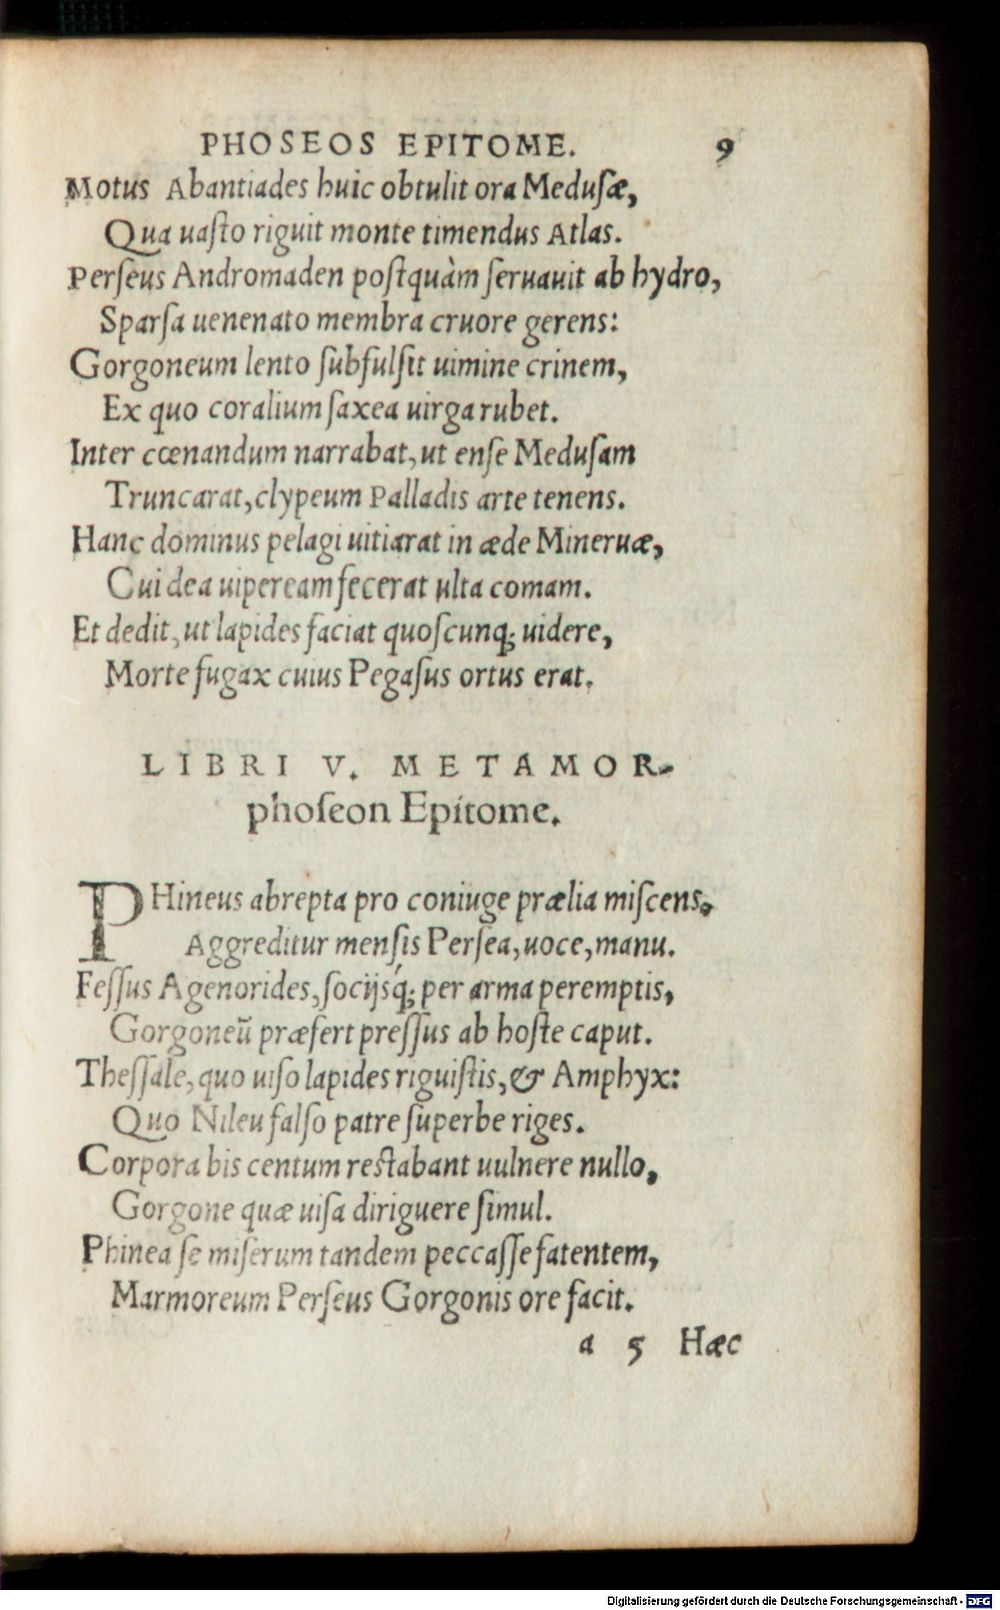 PHOSEOS EPITOME. 9
Motus Abantiades huic obtulit ora Medusæ,
Qua uaſto riguit monte timendus Atlas.
Perſeus Andromaden poſtquàm ſeruauit ab hydro,
Sparſa uenenato membra cruore gerens:
Gorgoneum lento ſubfulſit uimine crinem,
Ex quo coralium ſaxea uirga rubet.
Inter cœnandum narrabat, ut enſe Meduſam
Truncarat, clypeum Palladis arte tenens.
Hanc dominus pelagi uitiarat in æde Mineruæ,
Cui dea uipeream fecerat ulta comam.
Et dedit, ut lapides faciat quoſcunq; uidere,
Morte fugax cuius Pegaſus ortus erat.
LIBRI V. METAMOR-
phoſeon Epitome.
PHineus abrepta pro coniuge prælia miſcens,
Aggreditur menſis Perſea, uoce, manu.
Feſſus Agenorides, ſocijsq́; per arma peremptis,
Gorgoneū præfert preſſus ab hoſte caput.
Theſſale, quo uiſo lapides riguiſtis, & Amphyx:
Quo Nileu falſo patre ſuperbe riges.
Corpora bis centum reſtabant uulnere nullo,
Gorgone quæ uiſa diriguere ſimul.
Phinea ſe miſerum tandem peccaſſe fatentem,
Marmoreum Perſeus Gorgonis ore facit.
a 5 Hæc
Digitalisierung gefördert durch die Deutsche Forschungsgemeinschaft - DFG